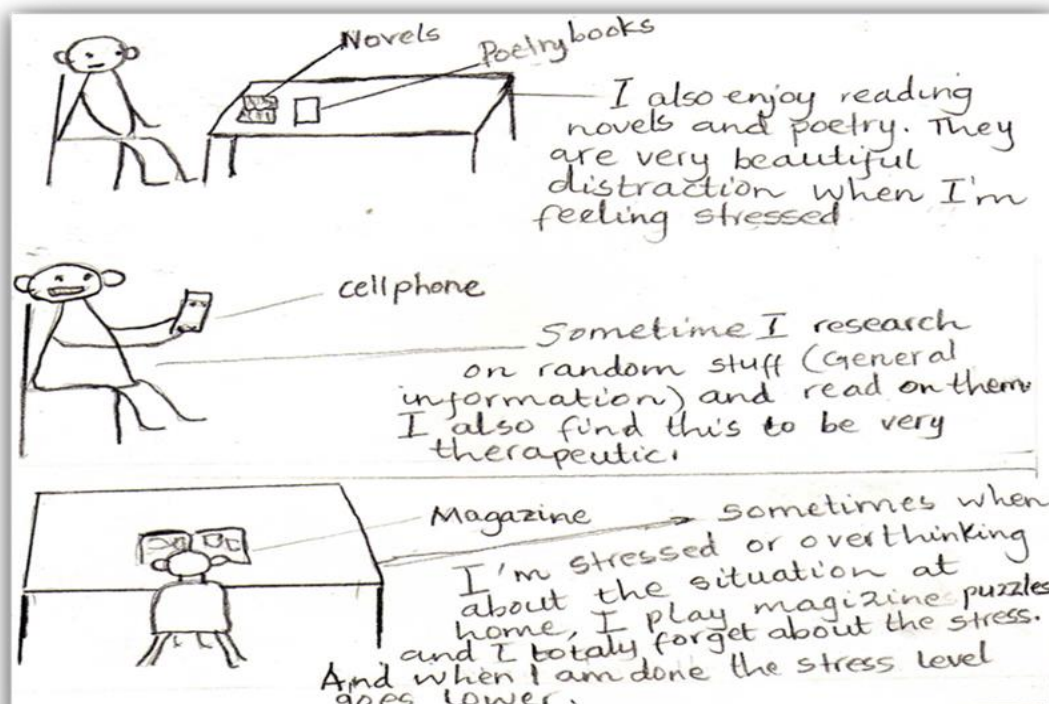 Novels
Poetry books
I also enjoy reading
novels and poetry. They
are very beautiful
distraction when I'm
feeling stressed
cellphone
Sometime I research
on random stuff (General
information) and read on them.
I also find this to be very
therapeutic.
Magazine
sometimes when
I'm stressed or overthinking
about the situation at
home, I play magizine puzzles
and I totaly forget about the stress.
And when I am done the stress level
goes lower.